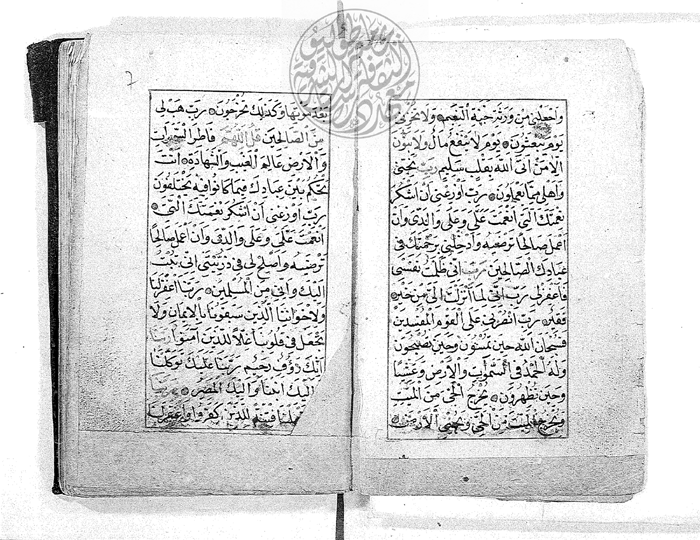 واجعلني من ورثة جنة النعيم ولا تخزني
يوم يبعثون يوم لا ينفع مال ولا بنون
الا من اتى الله بقلب سليم رب نجني
واهلي مما يعملون رب اوزعني ان اشكر
نعمتك التي انعمت علي وعلى والدي وان
اعمل صالحا ترضيه وادخلني برحمتك في
عبادك الصالحين رب اني ظلمت نفسي
فاغفر لي رب اني لما انزلت الي من خير
فقير رب انصرني على القوم المفسدين
فسبحان الله حين تمسون وحين تصبحون
وله الحمد في السموات والارض وعشيا
وحين تظهرون يخرج الحي من الميت
ويخرج الميت من الحي ويحيي الارض
بعد موتها وكذلك تخرجون رب هب لي
من الصالحين قل اللهم فاطر السموات
والارض عالم الغيب والشهادة انت
تحكم بين عبادك فيما كانوا فيه يختلفون
رب اوزعني ان اشكر نعمتك التي
انعمت علي وعلى والدي وان اعمل صالحا
ترضيه واصلح لي في ذريتي اني تبت
اليك واني من المسلمين ربنا اغفر لنا
ولاخواننا الذين سبقونا بالايمان ولا
تجعل في قلوبنا غلا للذين آمنوا ربنا
انك رؤوف رحيم ربنا عليك توكلنا
واليك انبنا واليك المصير ربنا
لا تجعلنا فتنة للذين كفروا واغفر لنا